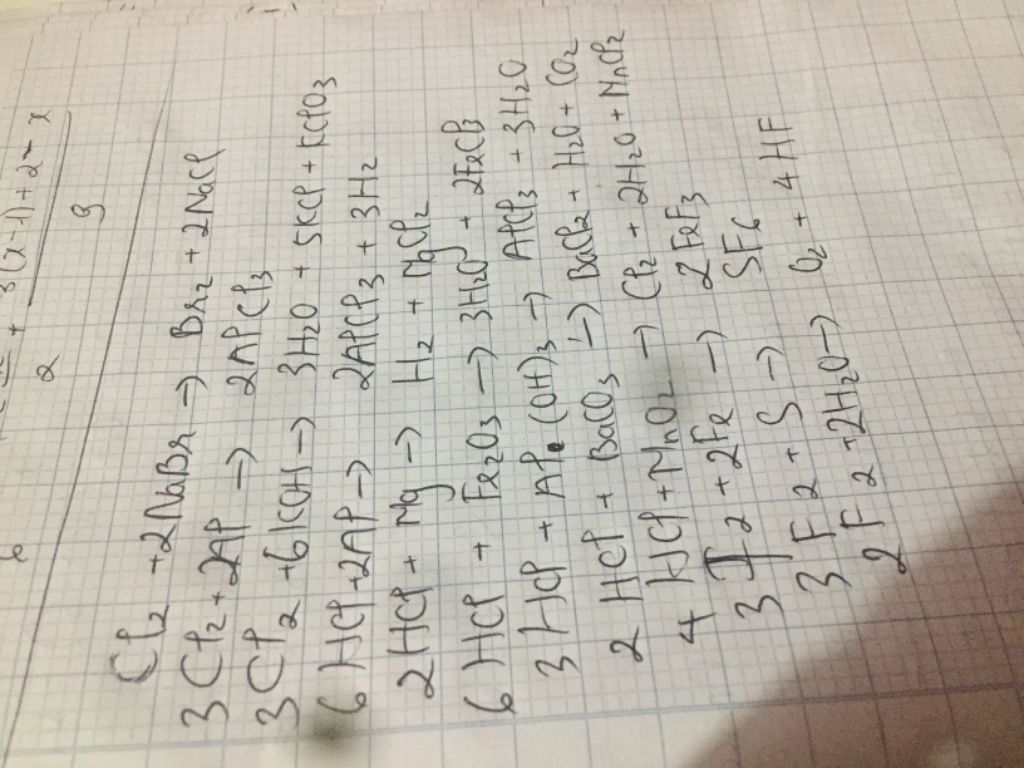 3(x-1)+2-x
2 + 9
Cl2 + 2NaBr → Br2 + 2NaCl
3Cl2 + 2Al → 2AlCl3
3Cl2 + 6KOH → 3H2O + 5KCl + KClO3
6HCl + 2Al → 2AlCl3 + 3H2
2HCl + Mg → H2 + MgCl2
6HCl + Fe2O3 → 3H2O + 2FeCl3
3HCl + Al(OH)3 → AlCl3 + 3H2O
2HCl + BaCO3 → BaCl2 + H2O + CO2
4HCl + MnO2 → Cl2 + 2H2O + MnCl2
3F2 + 2Fe → 2FeF3
3F2 + S → SF6
2F2 + 2H2O → O2 + 4HF